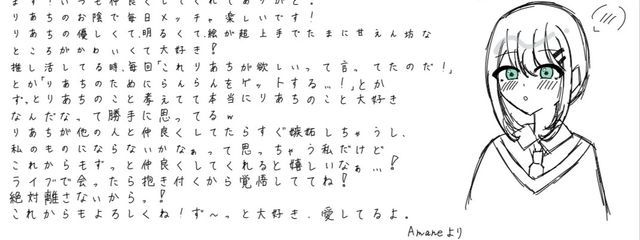 ます！いつも仲良くしてくれてありがと。
りあちのお陰で毎日メッチャ楽しいです！
りあちの優しくて、明るくて、絵が超上手でたまに甘えん坊な
ところがかわいくて大好き？
推し活してる時、毎回「これりあちが欲しいって言ってたのだ！」
とか「りあちのためにらんらんをゲットする…！」とか
ず。とりあちのこと考えてて本当にりあちのこと大好き
なんだなって勝手に思ってるw
りあちが他の人と仲良くしてたらすぐ嫉妬しちゃうし、
私のものにならないかなぁって思っちゃう私だけど
これからもずっと仲良くしてくれると嬉しいなぁ…！
ライブで会ったら抱き付くから覚悟しててね！
絶対離さないから。！
これからもよろしくね！ず〜っと大好き、愛してるよ。
Amaneより